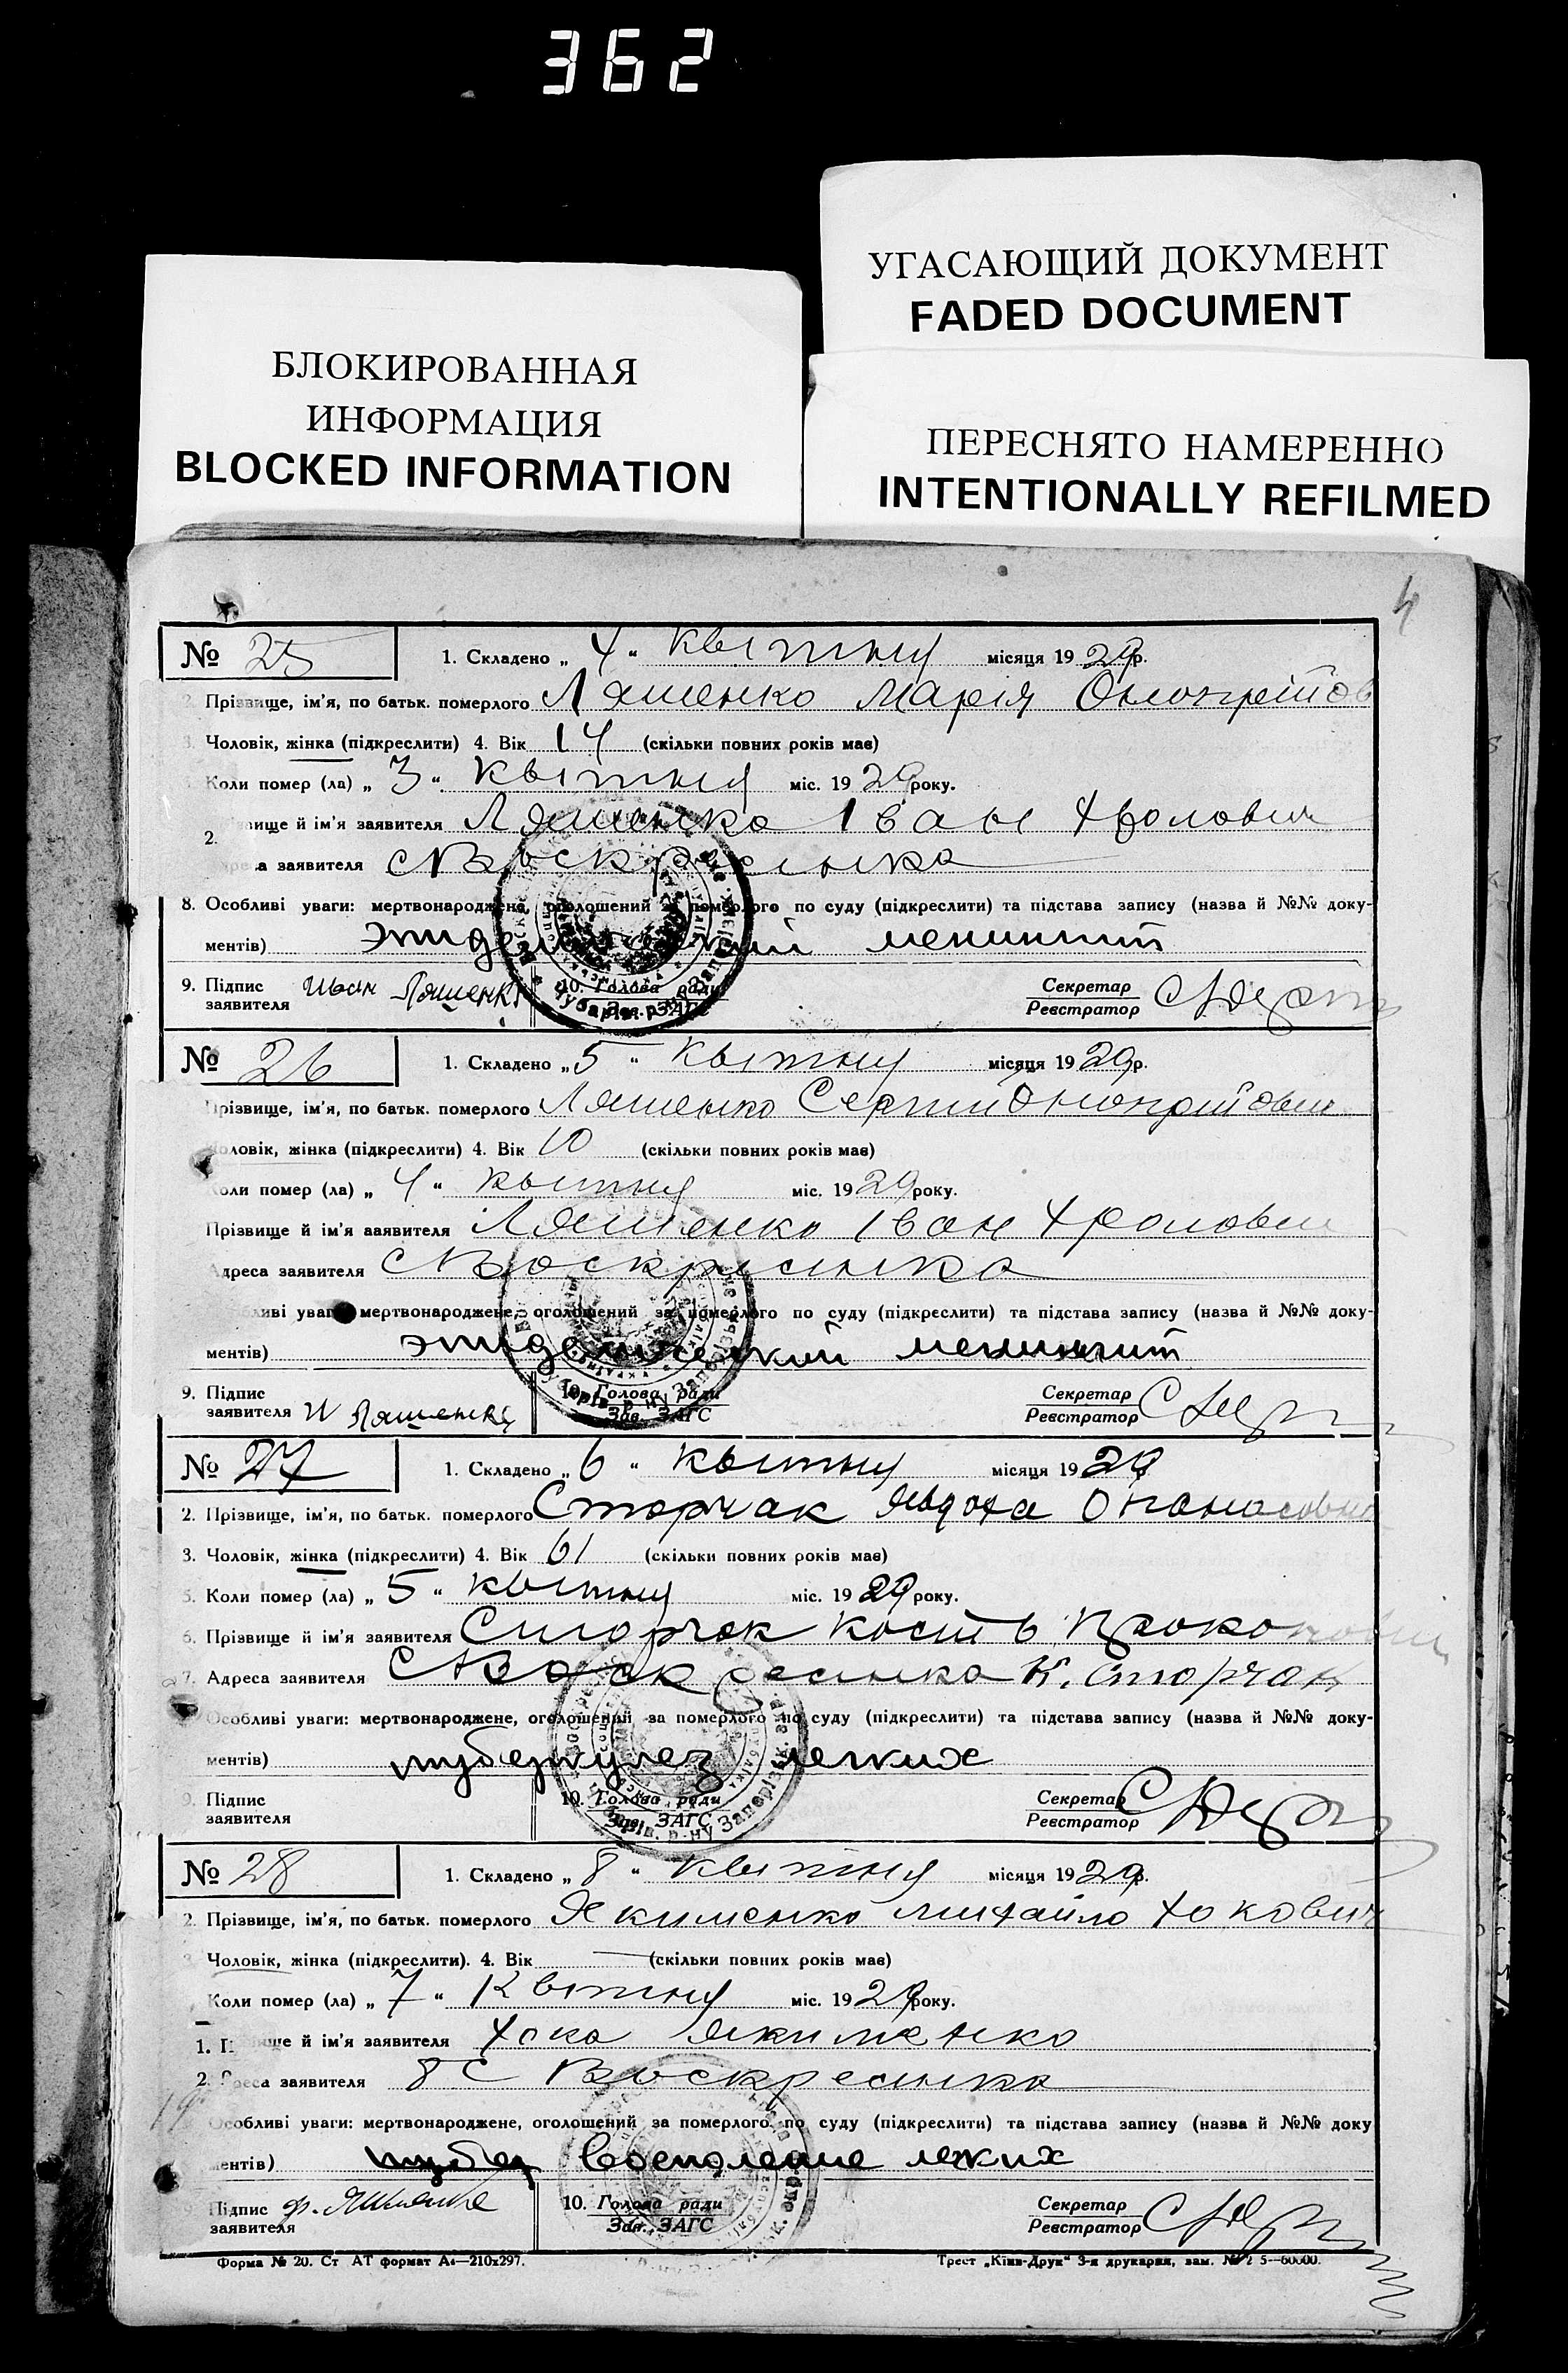 362
УГАСАЮЩИЙ ДОКУМЕНТ
FADED DOCUMENT
БЛОКИРОВАННАЯ
ИНФОРМАЦИЯ
BLOCKED INFORMATION
ПЕРЕСНЯТО НАМЕРЕННО
INTENTIONALLY REFILMED
4
№ 25 1. Складено „ 4 “ квітня місяця 19 29 р.
2. Прізвище, ім'я, по батьк. померлого Ляшенко Марія
3. Чоловік, жінка (підкреслити) 4. Вік 14 (скільки повних років має)
Коли помер (ла) „ 3 “ квітня міс. 19 29 року.
2. вище й ім'я заявителя Ляшенко Іван
а заявителя с Воскресенка
8. Особливі уваги: мертвонароджене, оголошений за померлого по суду (підкреслити) та підстава запису (назва й №№ доку-
ментів) эпидемический менингит
9. Підпис заявителя Иван Ляшенко 10. Голова ради Зав. ЗАГС Секретар Реєстратор
№ 26 1. Складено „ 5 “ квітня місяця 19 29 р.
Прізвище, ім'я, по батьк. померлого Ляшенко
Чоловік, жінка (підкреслити) 4. Вік 10 (скільки повних років має)
Коли помер (ла) „ 4 “ квітня міс. 19 29 року.
Прізвище й ім'я заявителя Ляшенко Іван
Адреса заявителя с Воскресенка
ливі уваги мертвонароджене, оголошений за померлого по суду (підкреслити) та підстава запису (назва й №№ доку-
ментів) эпидемический менингит
9. Підпис заявителя И Ляшенко 10. Голова ради Зав. ЗАГС Секретар Реєстратор
№ 27 1. Складено „ 6 “ квітня місяця 19 29
2. Прізвище, ім'я, по батьк. померлого Сторчак Явдоха
3. Чоловік, жінка (підкреслити) 4. Вік 61 (скільки повних років має)
5. Коли помер (ла) „ 5 “ квітня міс. 19 29 року.
6. Прізвище й ім'я заявителя Сторчак Кость
7. Адреса заявителя с Воскресенка К. Сторчак
Особливі уваги: мертвонароджене, оголошений за померлого по суду (підкреслити) та підстава запису (назва й №№ доку-
ментів) туберкулез легких
9. Підпис заявителя 10. Голова ради Зав. ЗАГС Секретар Реєстратор
№ 28 1. Складено „ 8 “ квітня місяця 19 29 р.
2. Прізвище, ім'я, по батьк. померлого Якименко Михайло Хокович
Чоловік, жінка (підкреслити). 4. Вік (скільки повних років має)
Коли помер (ла) „ 7 “ Квітня міс. 19 29 року.
1. ще й ім'я заявителя Хока Якименко
2. Адреса заявителя 8 с Воскресенка
Особливі уваги: мертвонароджене, оголошений за померлого по суду (підкреслити) та підстава запису (назва й №№ доку
ментів) воспаление легких
Підпис заявителя 10. Голова ради Зав. ЗАГС Секретар Реєстратор
Форма № 20. Ст АТ формат А4—210x297. Трест „Київ-Друк“ 3-я друкарня, зам.